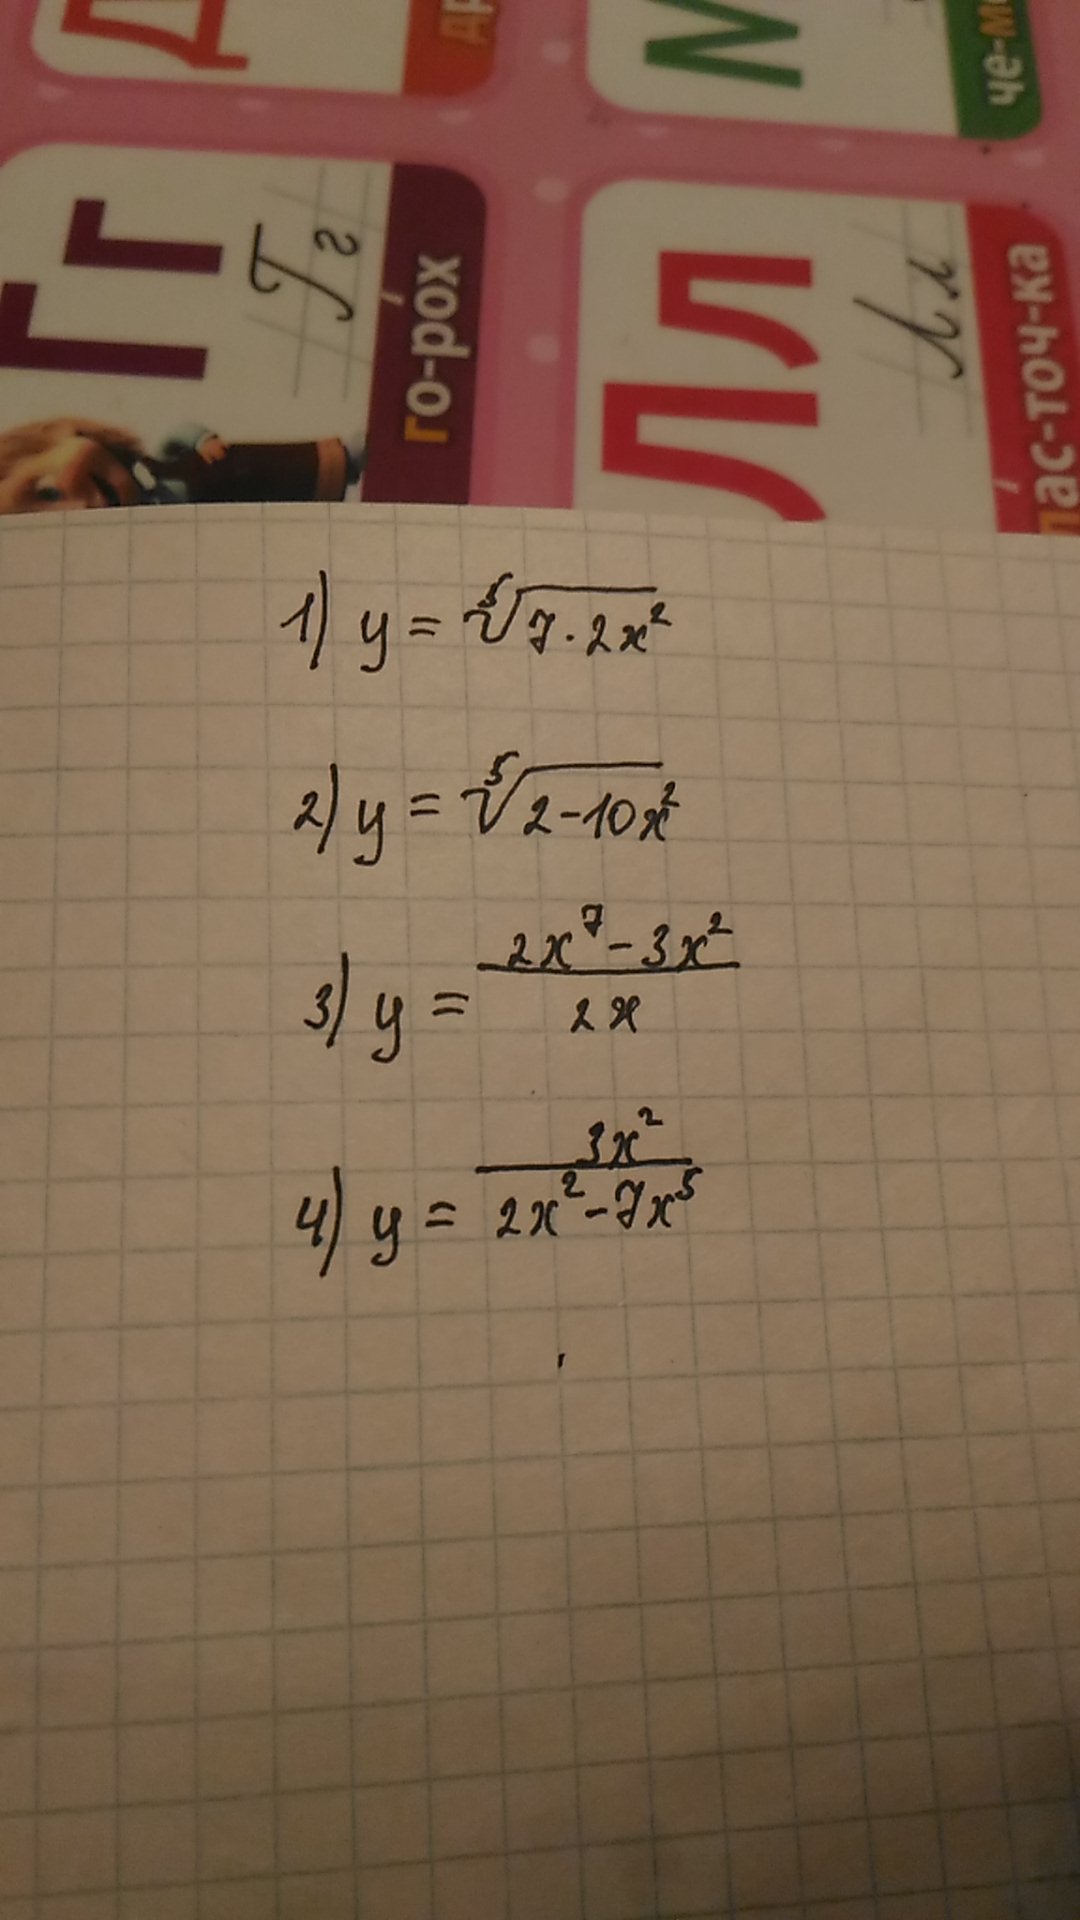 че-м
Гг
Гг
го-рох
Лл
Лл
лас-точ-ка
1) y = ⁵√(7·2x²)
2) y = ⁵√(2-10x²)
3) y = (2x⁷-3x²)/(2x)
4) y = (3x²)/(2x²-7x⁵)